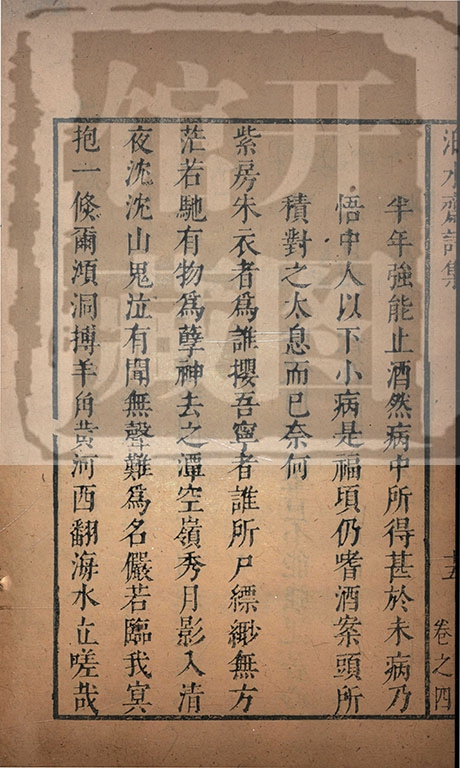 半年強能止酒然病中所得甚於未病乃
悟中人以下小病是福頃仍嗜酒案頭所
積對之太息而已奈何
紫房朱衣者為誰攖吾寧者誰所尸縹緲無方
茫若馳有物為孽神去之潭空嶺秀月影入清
夜沈沈山鬼泣有聞無聲難為名儼若臨我寘
抱一倏爾澒洞搏羊角黄河西翻海水立嗟哉
水齋詩集
卷之四
開圖
館藏